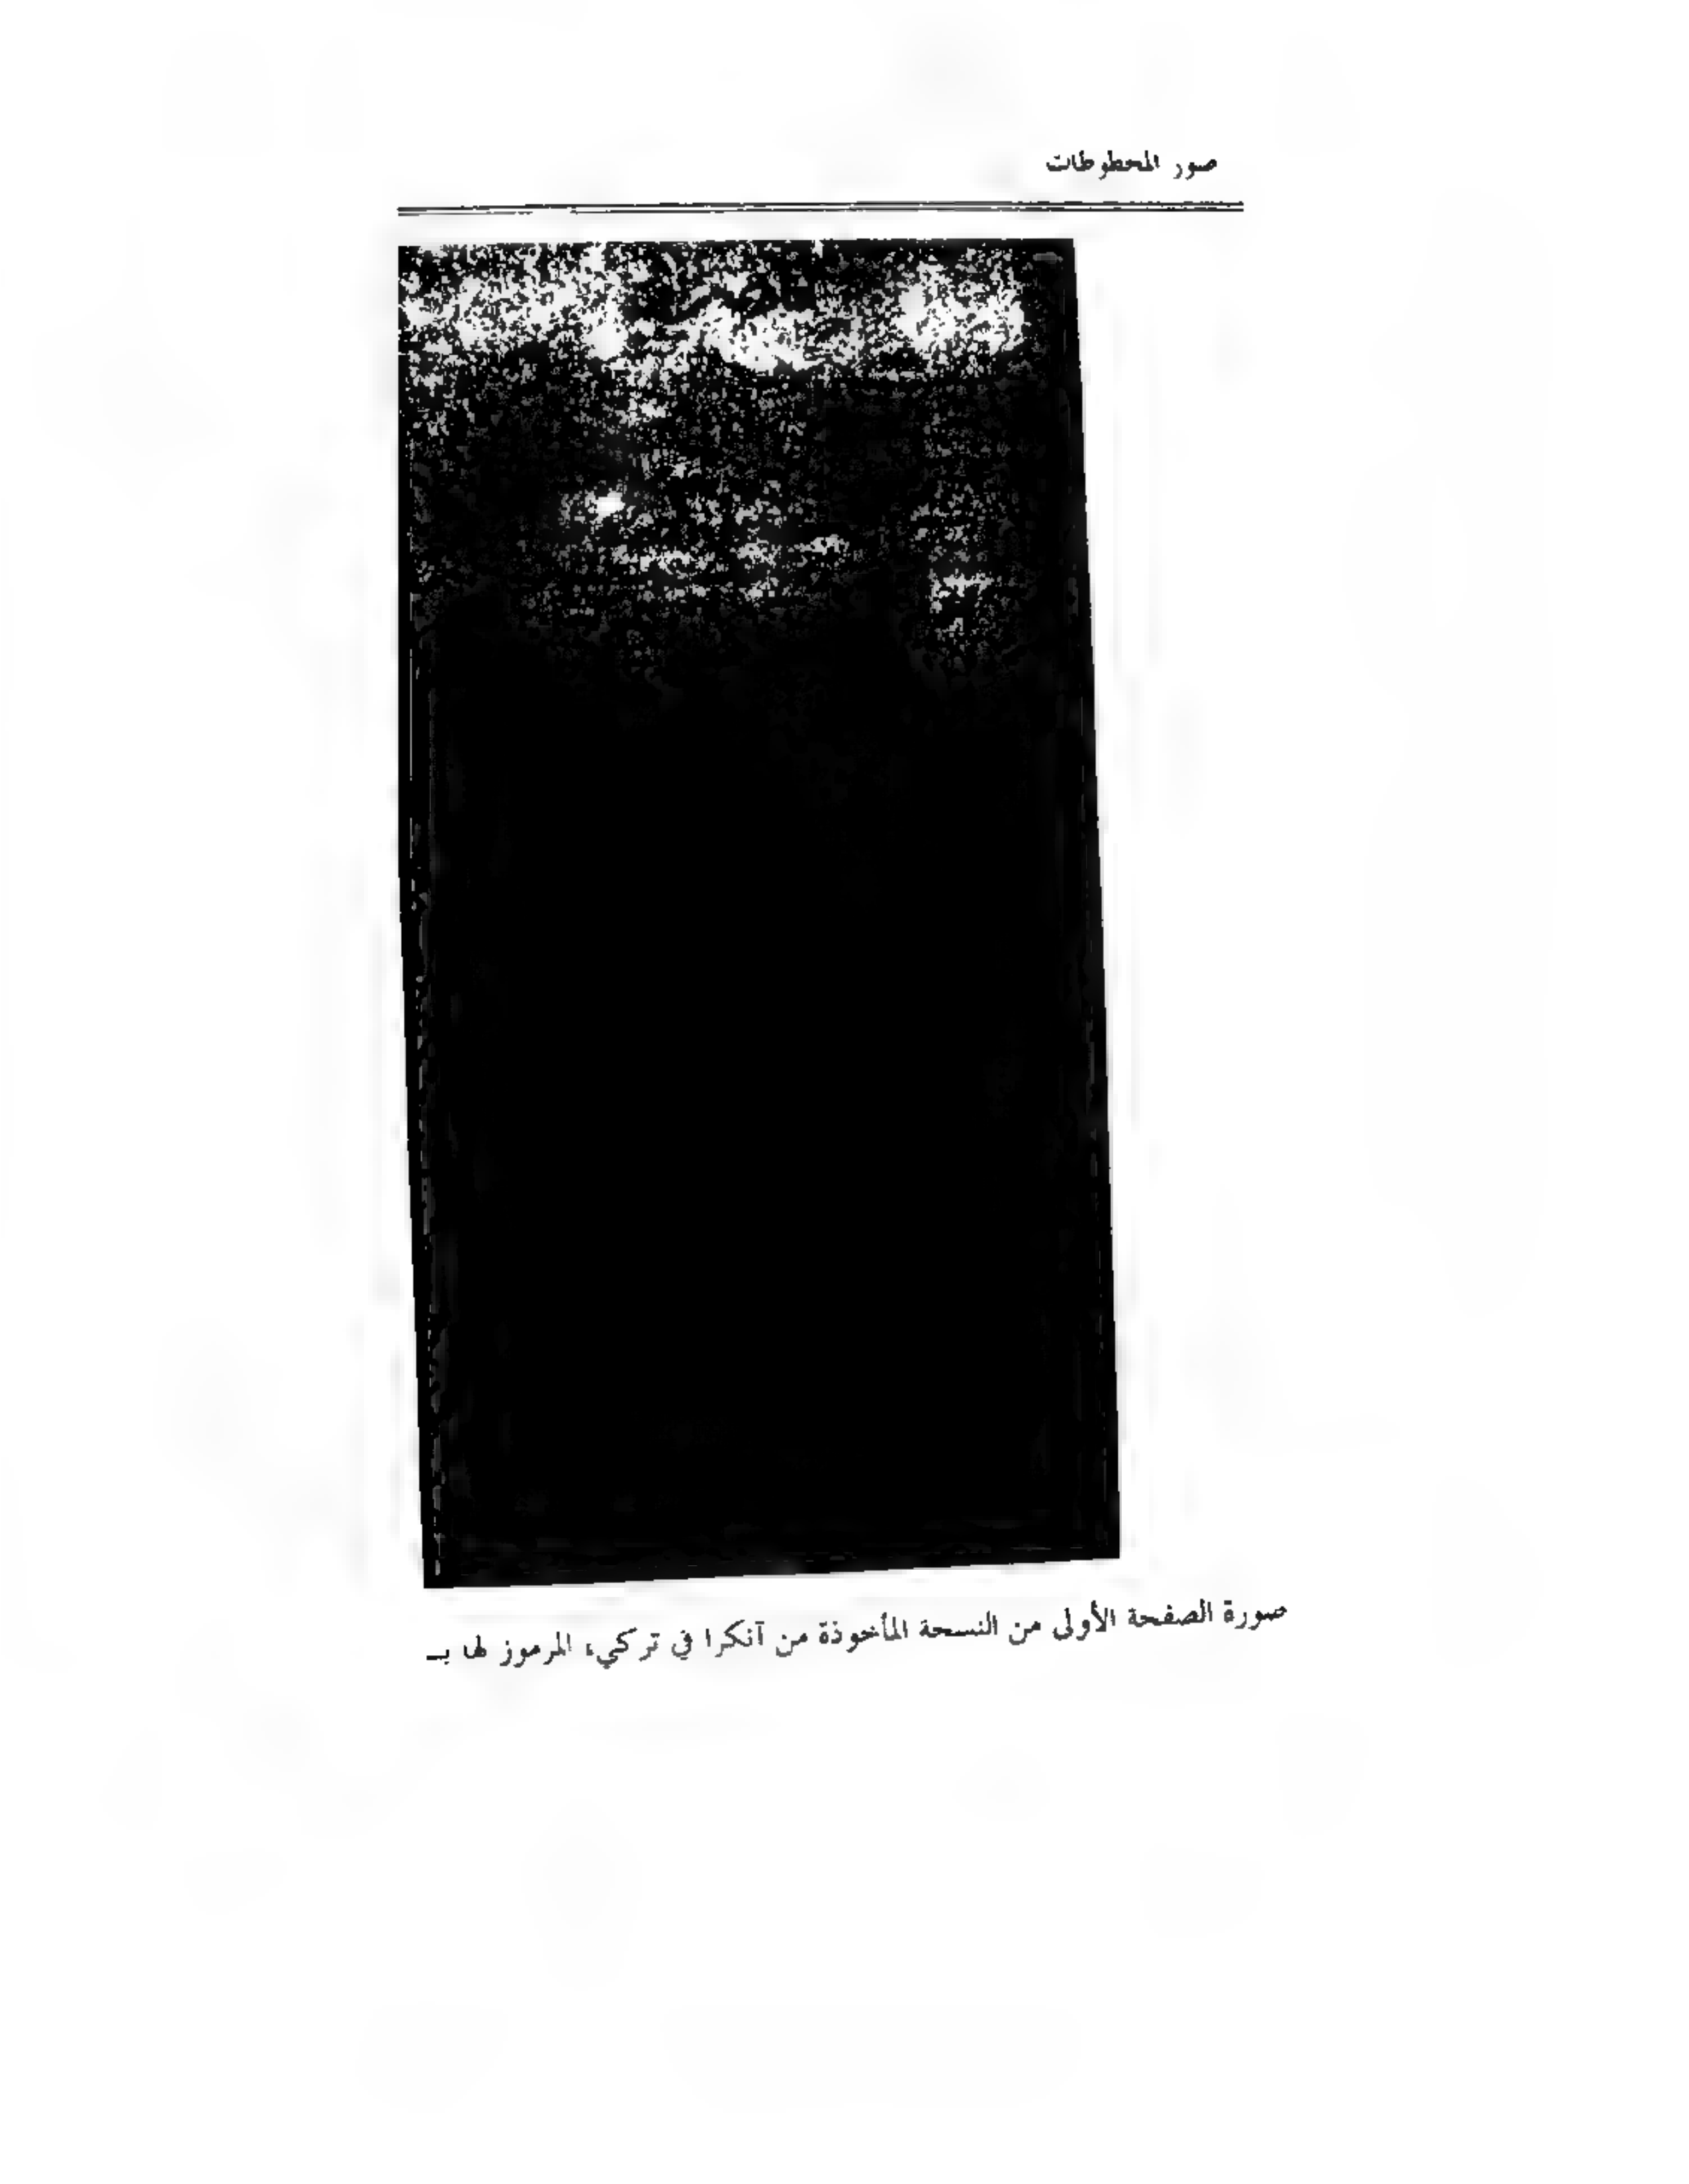 صور المخطوطات
صورة الصفحة الأولى من النسخة المأخوذة من آنكرا في تركي، المرموز لها بـ